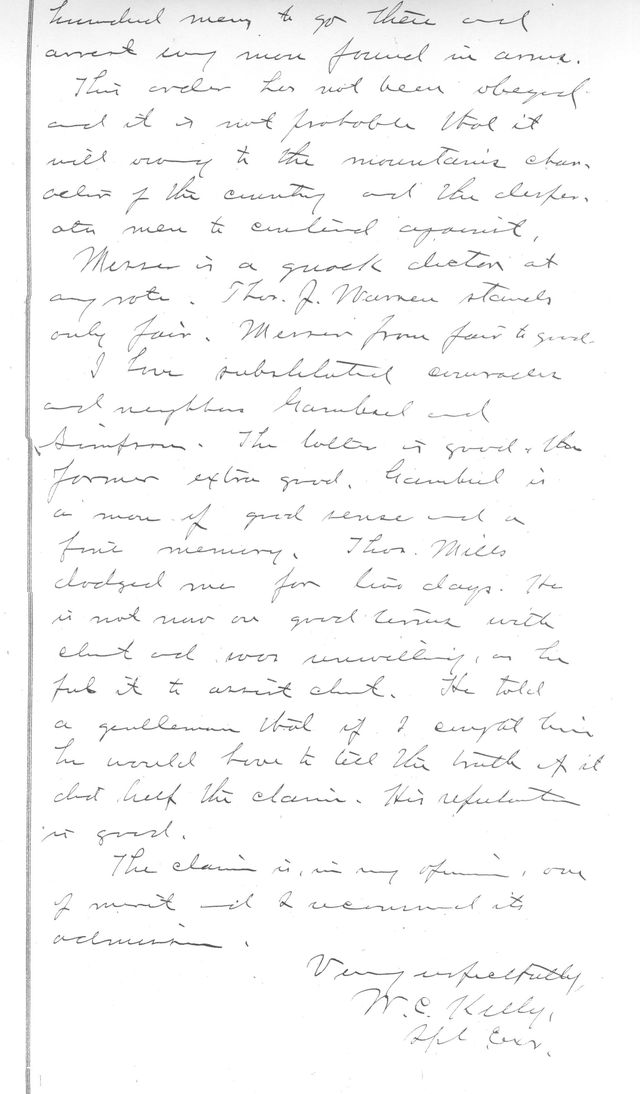 hundred men, to go there and
arrest any men found in arms.
This order has not been obeyed
and it is not probable that it
will owing to the mountains char-
acter of the country and the desper-
ate men to contend against,
Messer is a quack doctor at
any rate. Thos. J. Warren stands
only fair. Messer from fair to good.
I have substituted comrades
and neighbors Gambrel and
Simpson. The latter is good, the
former extra good. Gambrel is
a man of good sense and a
fine memory. Thos. Mills
dodged me for two days. He
is not now on good terms with
clmt and was unwilling, as he
put it to assist clmt. He told
a gentleman that if I caught him
he would have to tell the truth if it
did help the claim. His reputation
is good.
The claim is, in my opinion, one
of merit and I recommend its
admission.
Very respectfully,
W. C. Kelly,
Spl Exr.